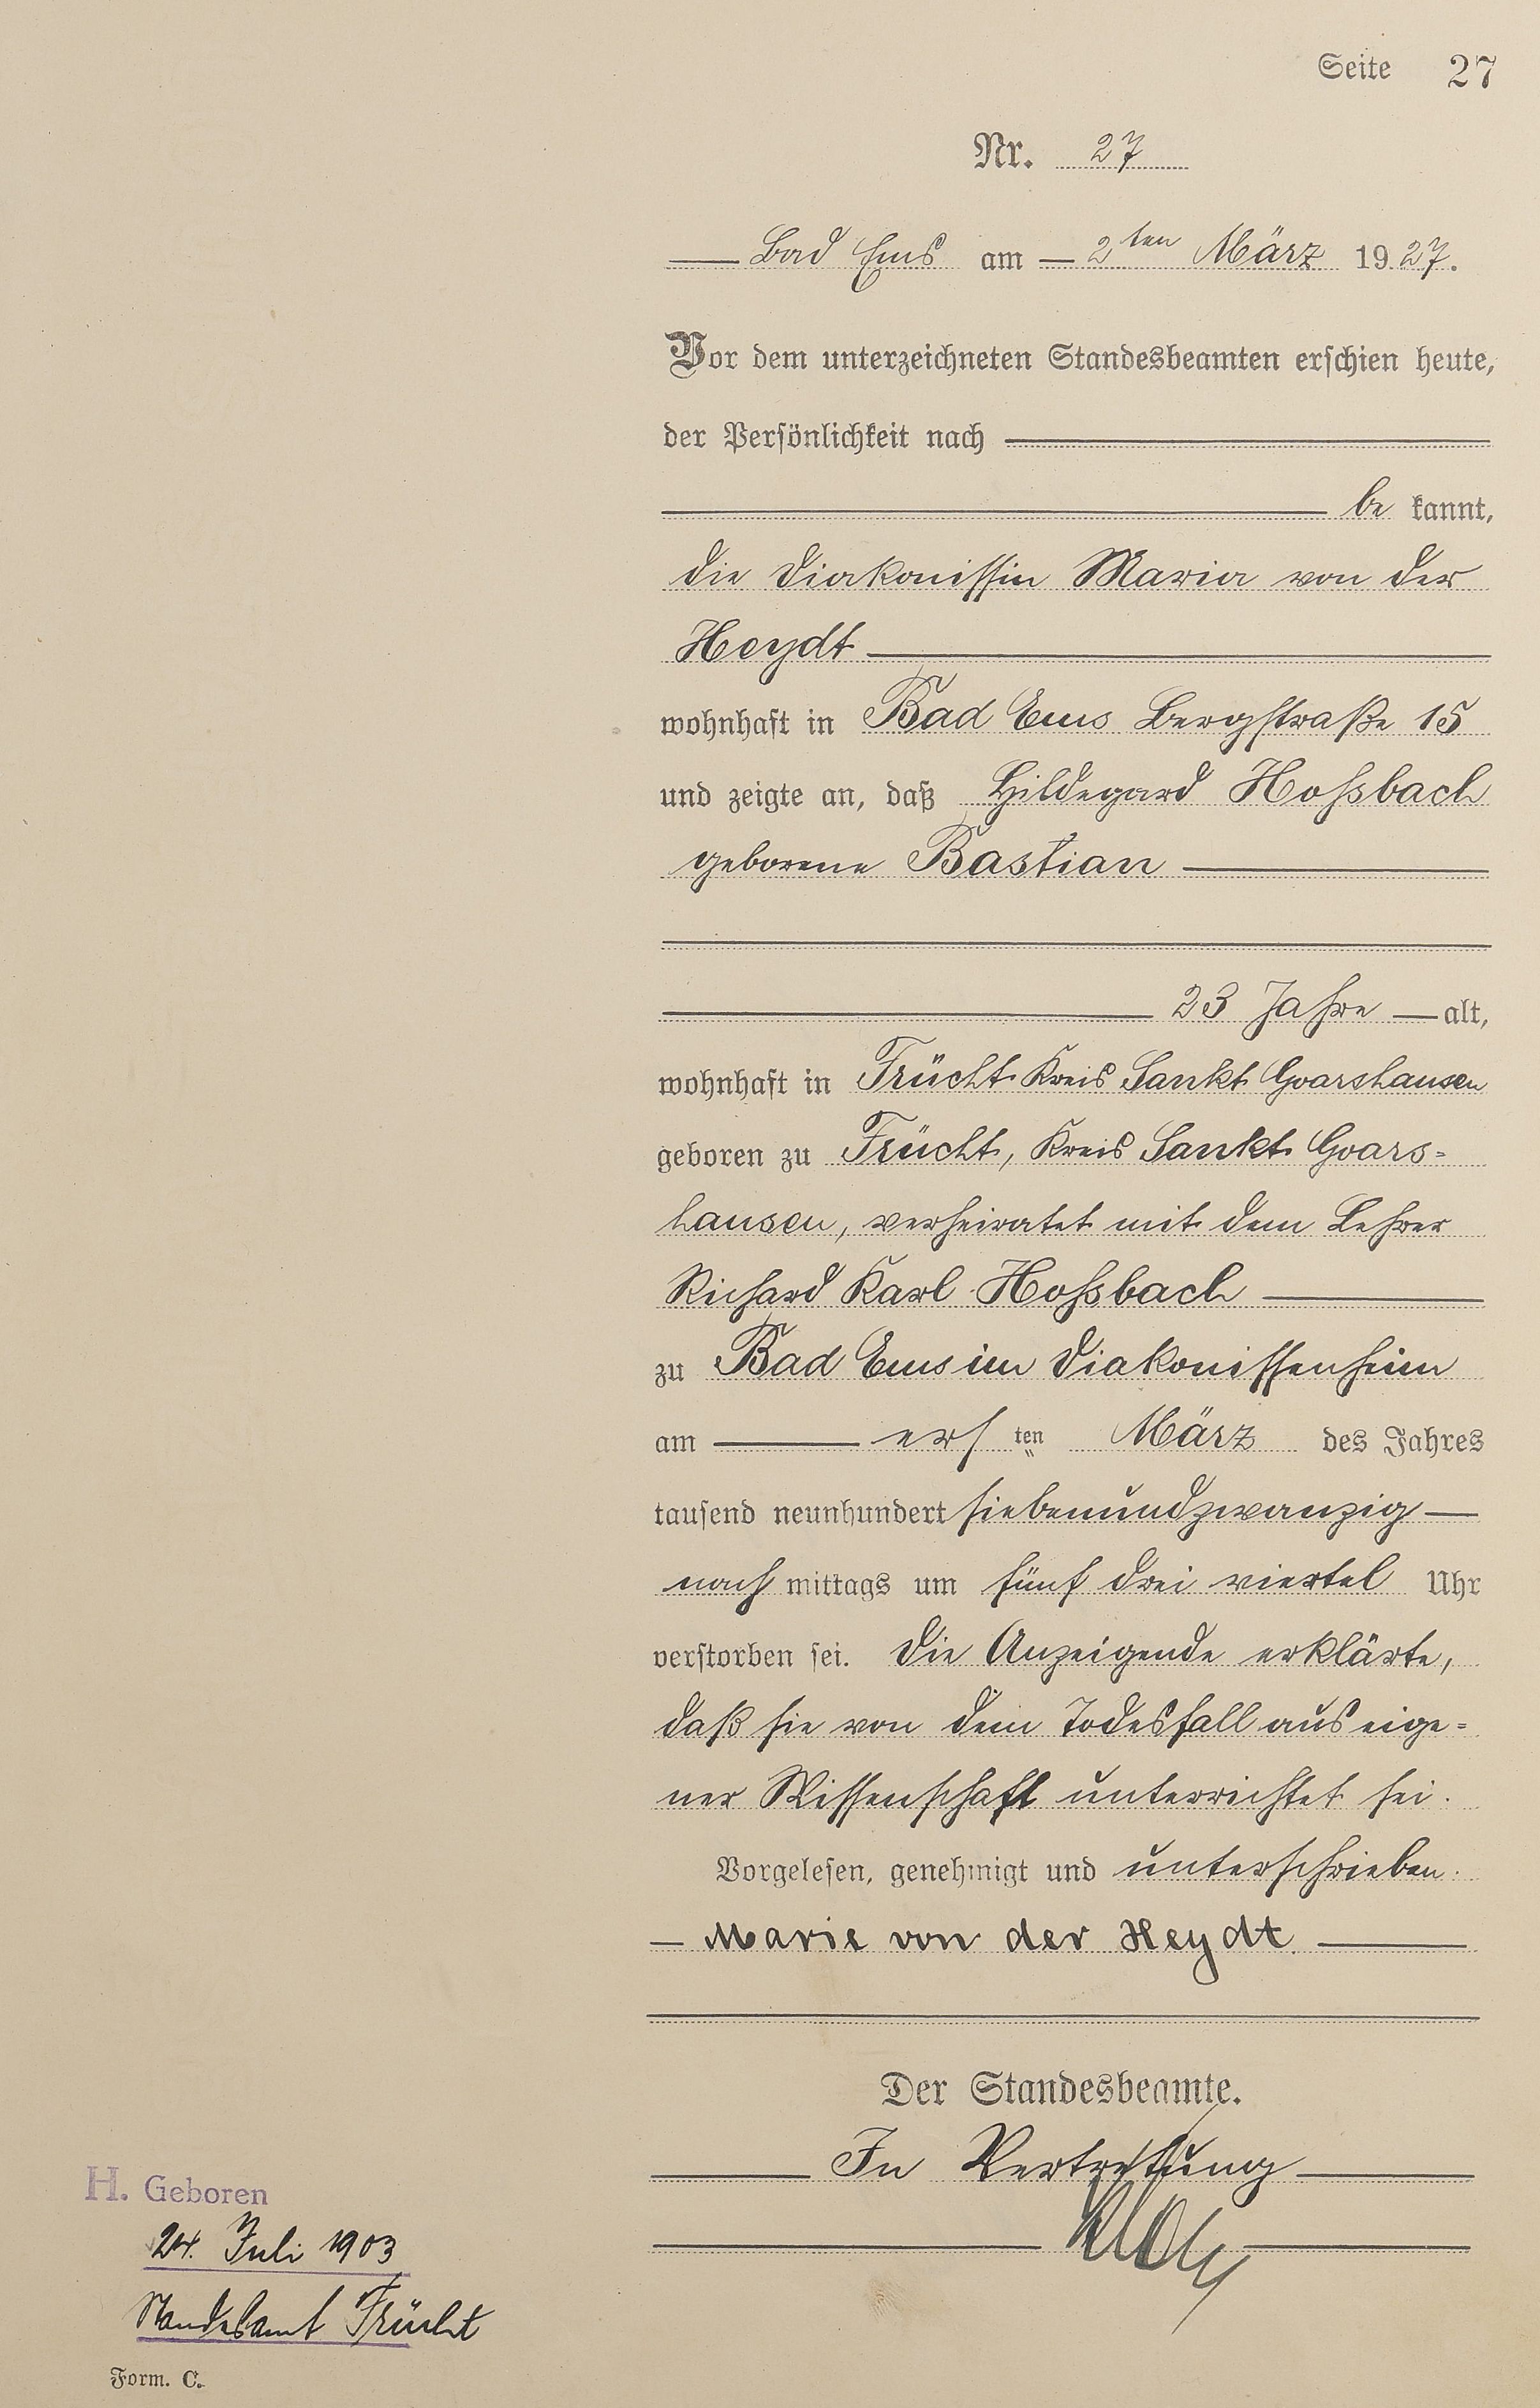 Seite 27
Nr. 27
Bad Ems am 2ten März 1927.
Vor dem unterzeichneten Standesbeamten erschien heute,
der Persönlichkeit nach
be kannt,
die Diakonissin Maria von der
Heydt
wohnhaft in Bad Ems Bergstraße 15
und zeigte an, daß Hildegard Hoßbach
geborene Bastian
23 Jahre alt,
wohnhaft in Frücht Kreis Sankt Goarshausen
geboren zu Frücht, Kreis Sankt Goars=
hausen, verheiratet mit dem Lehrer
Richard Karl Hoßbach
zu Bad Ems im Diakonissenheim
am ersten März des Jahres
tausend neunhundert siebenundzwanzig
nachmittags um fünf drei viertel Uhr
verstorben sei. Die Anzeigende erklärte,
daß sie von dem Todesfall aus eige=
ner Wissenschaft unterrichtet sei.
Vorgelesen, genehmigt und unterschrieben.
Marie von der Heydt.
Der Standesbeamte.
In Vertretung
H. Geboren
24. Juli 1903
Standesamt Frücht
Form. C.